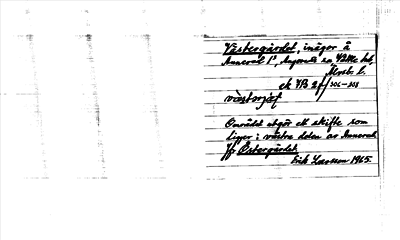 Västergärdet, inägor å
Anneröd 1², Angereds sn, Vättle hd,
Älvsb. l.
ek 7B 2f / 306-308
västərjæt
Området utgör ett skifte som
ligger i västra delen av Anneröd
Jfr Östergärdet.
Erik Larsson 1965.